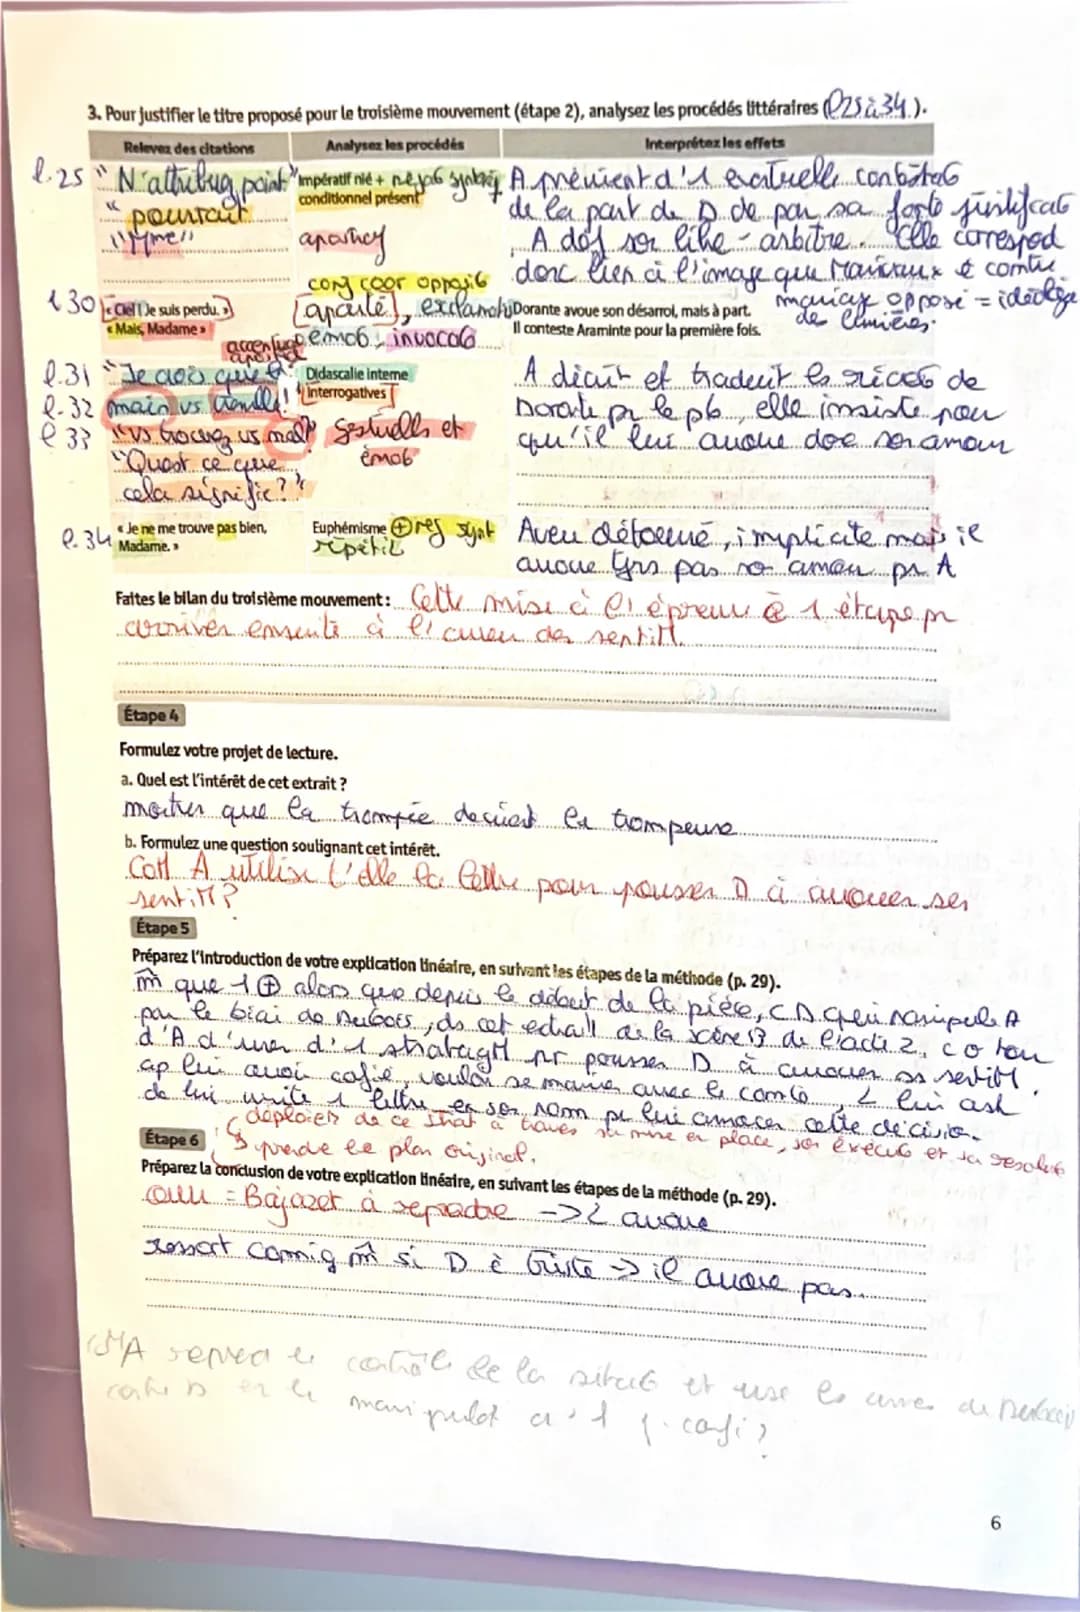 3. Pour justifier le titre proposé pour le troisième mouvement (étape 2), analysez les procédés littéraires (l25 à 34).
Relevez des citations
Analysez les procédés
Interprétez les effets
l.25 "N'attribuez point"
"pourrait"
"Mme"
Impératif nié +
conditionnel présent
conj coor opposit°
A prévient d'1 éventuelle contestat°
de la part de D de par sa forte justificat°
A déf son libre-arbitre. Elle correspond
donc bien à l'image que Marivaux
mariage opposé = idéologie
de lumières.
l 30
« Ciel ! Je suis perdu. »
« Mais, Madame »
[aparté],
émot°, invocat°
Dorante avoue son désarroi, mais à part.
Il conteste Araminte pour la première fois.
l.31 "Je crois que
l.32 main vs tremble!
l 33 "vs trouvez vs mal?"
"Quest ce que
cela signifie?"
Didascalie interne
Interrogatives
gestuelle et
émot°
A décrit et traduit les réact° de
Dorante pr le pb, elle insiste pour
qu'il lui avoue donc son amour
l.34
« Je ne me trouve pas bien,
Madame. »
Euphémisme ⊕
répétit°
Aveu détourné, implicite mais il
avoue tjrs pas son amour pr A
Faites le bilan du troisième mouvement : Cette mise à l'épreuve è 1 étape pr
arriver ensuite à l'aveu des sentiM.
Étape 4
Formulez votre projet de lecture.
a. Quel est l'intérêt de cet extrait ?
montrer que la trompée devient la trompeuse
b. Formulez une question soulignant cet intérêt.
CoM A utilise t'elle la lettre pour pousser D à avouer ses
sentiM ?
Étape 5
Préparez l'introduction de votre explication linéaire, en suivant les étapes de la méthode (p. 29).
m̂ que 1 ⊕ alors que depuis le début de la pièce, C D qui manipule A
par le biai de Dubois, ds cet extrait de la scène 13 de l'acte 2, c o tour
d'A d'user d'1 stratagM pr pousser D à avouer ss sentiM
ap lui avoir confié vouloir se marier avec le comte, L lui ask
de lui write 1 lettre en son nom pr lui annoncer cette décision.
déploiem de ce strat à travers sa mise en place, son exécut° et sa résolut°
prendre le plan original.
Étape 6
Préparez la conclusion de votre explication linéaire, en suivant les étapes de la méthode (p. 29).
ouu = Bajazet à reprendre -> L avoue
ressort comiq m̂ si D è triste -> il avoue pas.
A reprend le contrôle de la situat° et use les armes de
6